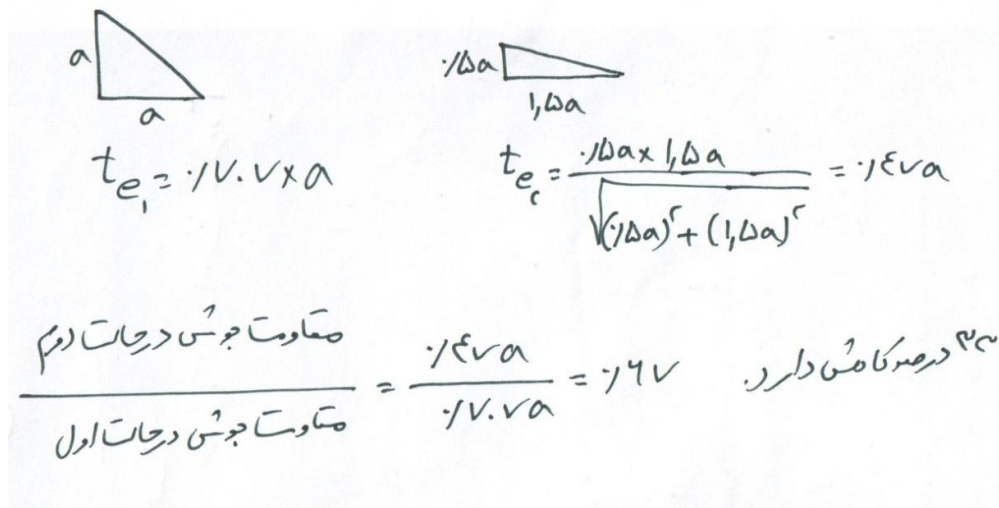 a
a
۰/۵a
۱,۵a
te₁ = ۰/۷۰۷ × a
te₂ = ۰/۵a × ۱,۵a / √(۰/۵a)² + (۱,۵a)² = ۰/۴۷a
مقاومت جوش در حالت دوم / مقاومت جوش در حالت اول = ۰/۴۷a / ۰/۷۰۷a = ۰/۶۷ ۳۳ درصد کاهش دارد.